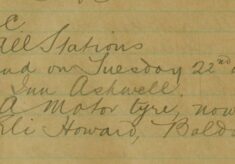 C
All Stations
and on Tuesday 22nd
Inn Ashwell.
A Motor tyre, now
Eli Howard, Bald